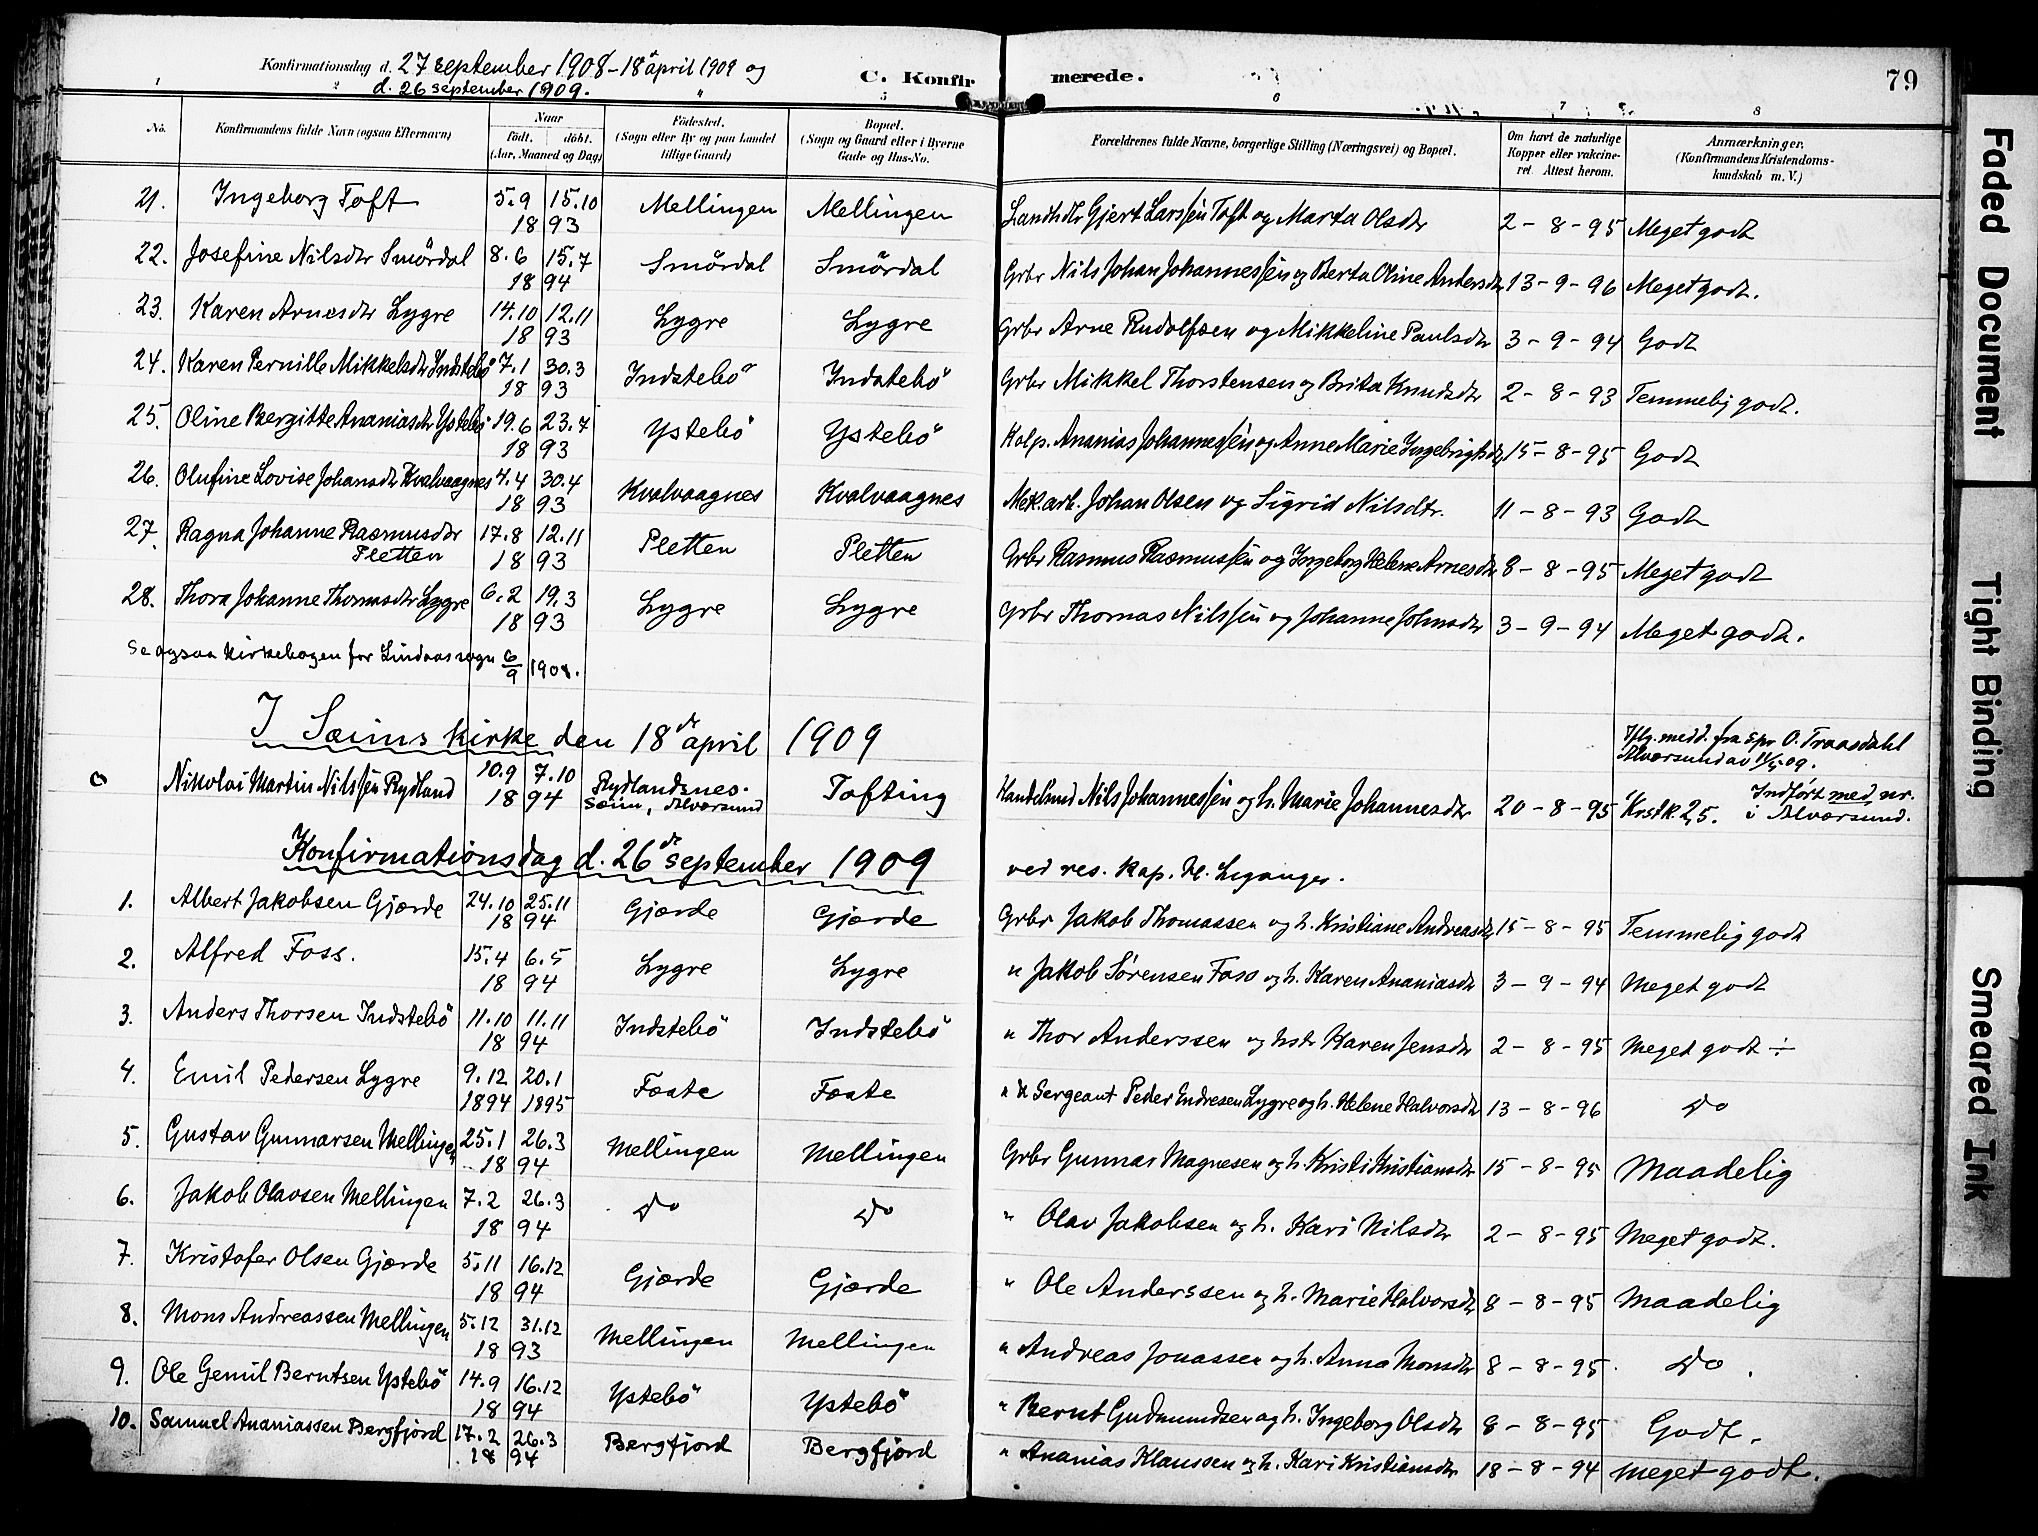 Konfirmationsdag d. 27 september 1908 - 18 april 1909 og
d. 26 september 1909.
C. Konfirmerede.
79
1 2 " 5 6 7 8
No. Konfirmandens fulde Navn (ogsaa Efternavn) Naar födt. döbt. (Aar, Maaned og Dag) Födested. (Sogn eller By og paa Landet tillige Gaard) Bopæl. (Sogn og Gaard eller i Byerne Gade og Hus-No. Forældrenes fulde Navne, borgerlige Stilling (Næringsvei) og Bopæl. Om havt de naturlige Kopper eller vakcineret. Attest herom. Anmærkninger. (Konfirmandens Kristendomskundskab m. V.)
21. Ingeborg Toft 5.9 15.10 1893 Mellingen Mellingen Landh. Gjert Larssen Toft og Marta Olsdtr 2-8-95 Meget godt
22. Josefine Nilsdtr Smördal 8.6 15.7 1894 Smördal Smördal Grbr Nils Johan Johannessen og Berta Oline Andersdtr 13-9-96 Meget godt.
23. Karen Arnesdtr Lygre 14.10 12.11 1893 Lygre Lygre Grbr Arne Rudolfsen og Mikkeline Paulsdtr 3-9-94 Godt
24. Karen Pernille Mikkelsdtr Indstebö 7.1 30.3 1893 Indstebö Indstebö Grbr Mikkel Thorstensen og Brita Knudsdtr 2-8-93 Temmelig godt.
25. Oline Bergitte Ananiasdtr Ystebö 19.6 23.7 1893 Ystebö Ystebö Kolp. Ananias Johannessen og Anne Marie Ingebrigtsdtr 15-8-95 Godt
26. Olufine Lovise Johansdtr Kvalvaagnes 4.4 30.4 1893 Kvalvaagnes Kvalvaagnes Mek.arb. Johan Olsen og Sigrid Nilsdtr. 11-8-93 Godt
27. Ragna Johanne Rasmusdtr Pletten 17.8 12.11 1893 Pletten Pletten Grbr Rasmus Rasmussen og Ingeborg Helene Arnesdtr 8-8-95 Meget godt
28. Thora Johanne Thomasdtr Lygre 6.2 19.3 1893 Lygre Lygre Grbr Thomas Nilssen og Johanne Johnsdtr 3-9-94 Meget godt.
Se ogsaa kirkebogen for Lindaas sogn 6/9 1908.
I Sæims kirke den 18de april 1909
Iflg. medd. fra spr O. Traasdahl
Alversund av 11/5 09.
Nikolai Martin Nilssen Rydland 10.9 7.10 1894 Rydlandsnes. Seim, Alversund Tofting Handelsmd Nils Johannessen og h. Marie Johannesdtr 20-8-95 Krstk. 2,5. Indfört med nr. i Alversund.
Konfirmationsdag d. 26de september 1909 ved res. kap. H. Leganger.
1. Albert Jakobsen Gjærde 24.10 25.11 1894 Gjærde Gjærde Grbr Jakob Thomassen og h. Kristiane Andreasdtr 15-8-95 Temmelig godt
2. Alfred Foss. 15.4 6.5 1894 Lygre Lygre " Jakob Sörensen Foss og h. Karen Ananiasdtr 3-9-94 Meget godt
3. Anders Thorsen Indstebö 11.10 11.11 1894 Indstebö Indstebö " Thor Anderssen og hstr Karen Jensdtr 2-8-95 Meget godt ÷
4. Emil Pedersen Lygre 9.12 20.1 1894 1895 Foste Foste " Sergeant Peder Endresen Lygre og h. Helene Halvorsdtr 13-8-96 Do
5. Gustav Gunnarsen Mellingen 25.1 26.3 1894 Mellingen Mellingen Grbr Gunnar Magnesen og h. Kristi Kristiansdtr 15-8-95 Maadelig
6. Jakob Olavsen Mellingen 7.2 26.3 1894 Do Do " Olav Jakobsen og h. Kari Nilsdtr 2-8-95 Meget godt.
7. Kristofer Olsen Gjærde 5.11 16.12 1894 Gjærde Gjærde " Ole Anderssen og h. Marie Halvorsdtr 8-8-95 Maadelig
8. Mons Andreassen Mellingen 5.12 31.12 1893 Mellingen Mellingen " Andreas Jonassen og h. Anna Monsdtr 8-8-95 Do.
9. Ole Gemil Berntsen Ystebö 14.9 16.12 1894 Ystebö Ystebö " Bernt Gudmundsen og h. Ingeborg Olsdtr 8-8-95 Godt.
10. Samuel Ananiassen Bergfjord 17.2 26.3 1894 Bergfjord Bergfjord " Ananias Klaussen og h. Kari Kristiansdtr 18-8-94 Meget godt.
Faded Document
Tight Binding
Smeared Ink